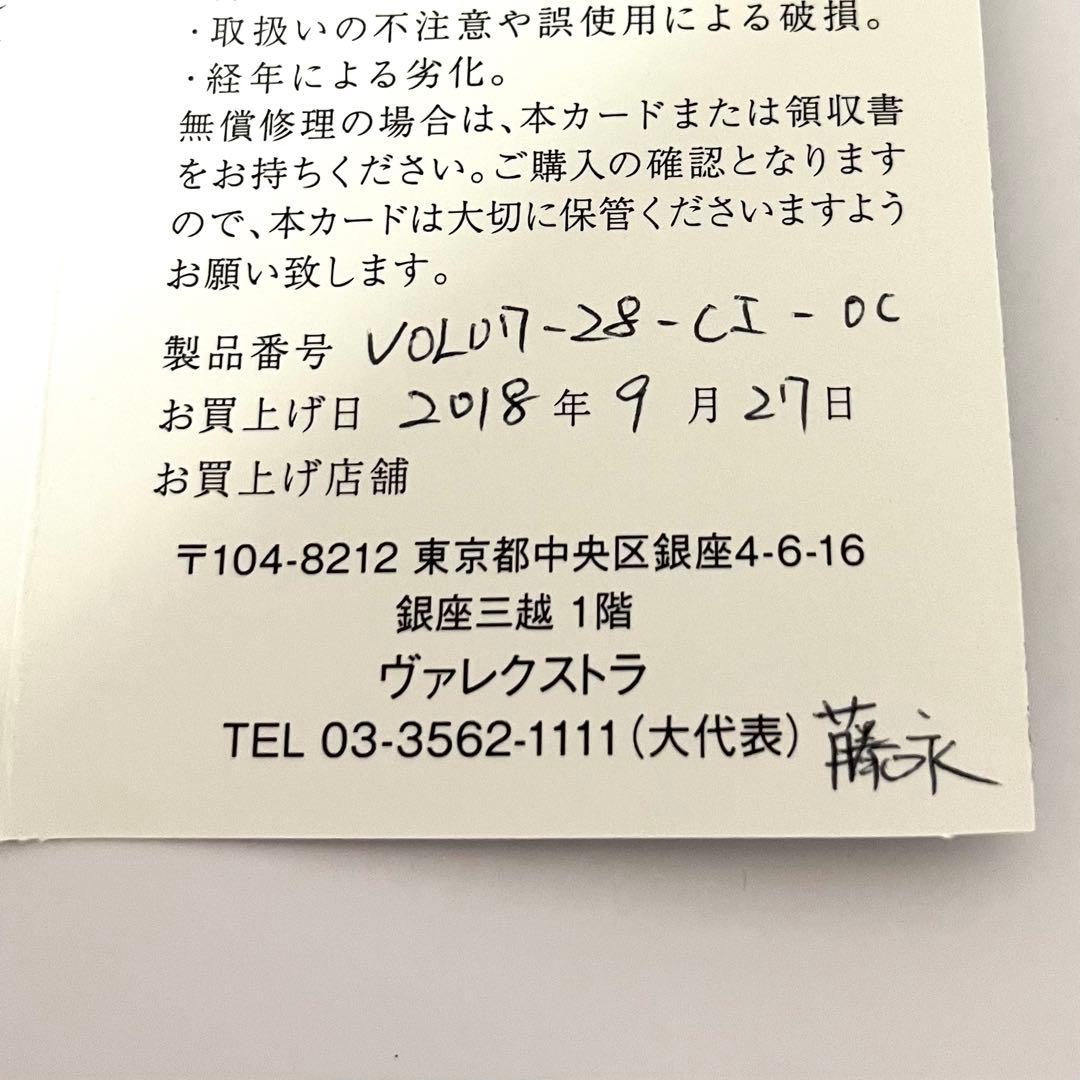 ・取扱いの不注意や誤使用による破損。
・経年による劣化。
無償修理の場合は、本カードまたは領収書
をお持ちください。ご購入の確認となります
ので、本カードは大切に保管くださいますよう
お願い致します。
製品番号 VOL07-28-CI-OC
お買上げ日 2018年9月27日
お買上げ店舗
〒104-8212 東京都中央区銀座4-6-16
銀座三越 1階
ヴァレクストラ
TEL 03-3562-1111(大代表) 藤永